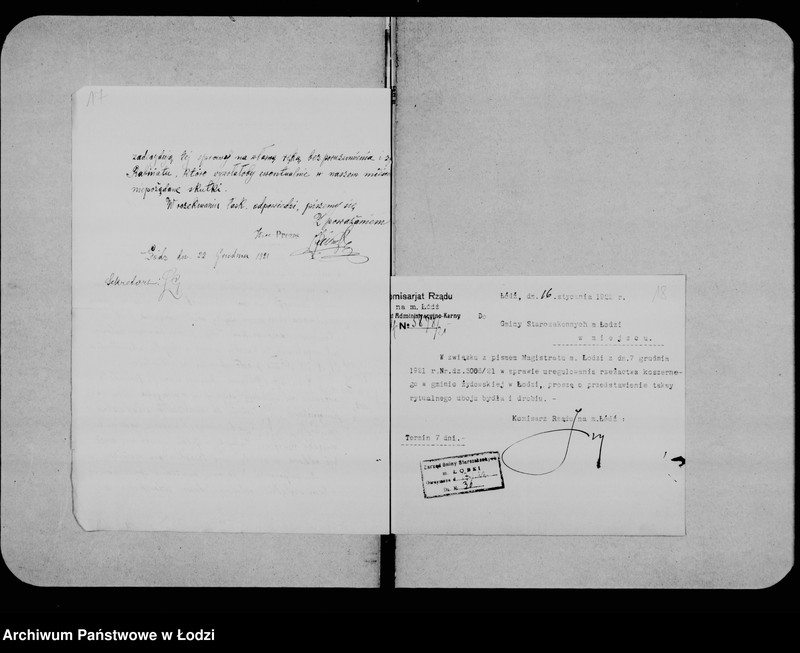 117
załatwiają tej sprawy na własną ręką bez porozumienia
Rabinatu, które wywołałoby ewentualnie w naszem
niepożądane skutki.
W oczekiwaniu łask. odpowiedzi, piszemy się
Z poważaniem
Prezes
Łódź dn. 22 Grudnia 1921
Sekretarz:
118
misarjat Rządu
na m. Łódź
Administracyjno-Karny
№
Łódź, dn. 16 .stycznia 1922 r.
Do
Gminy Starozakonnych m Łodzi
w miejscu.
W związku z pismem Magistratu m. Łodzi z dn.7 grudnia
1921 r.Nr.dz.3008/21 w sprawie uregulowania rzezactwa koszerne-
go w gminie żydowskiej w Łodzi, proszę o przedstawienie taksy
rytualnego uboju bydła i drobiu. -
Komisarz Rządu na m.Łódź :
Termin 7 dni.-
Zarząd Gminy Starozakonnych
m. ŁODZI
Otrzymano d.
30
Archiwum Państwowe w Łodzi